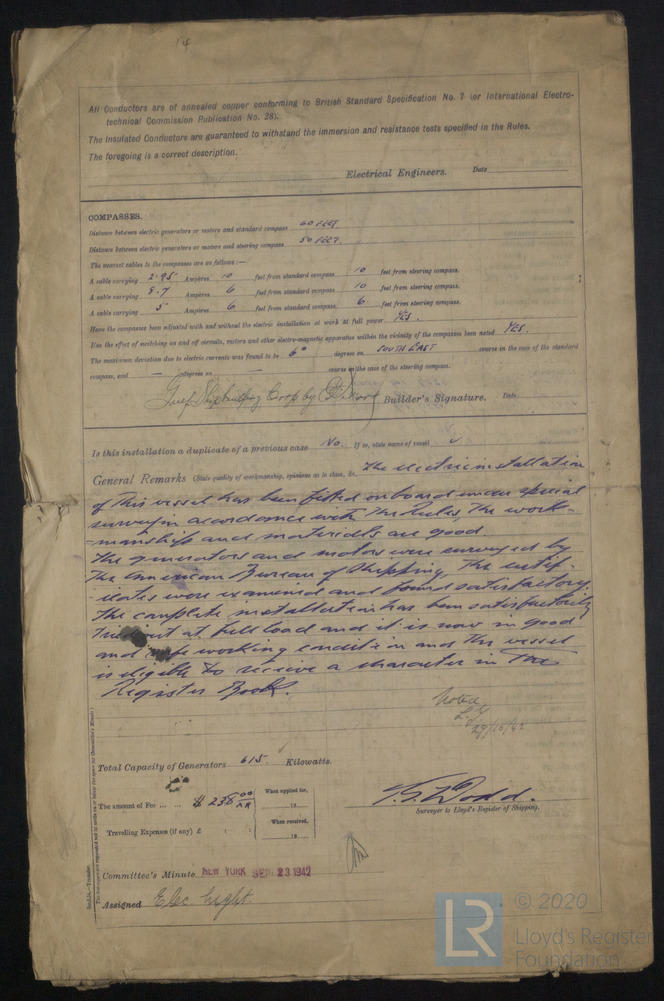 All Conductors are of annealed copper conforming to British Standard Specification No. 7 (or International Electro-
technical Commission Publication No. 28).
The Insulated Conductors are guaranteed to withstand the immersion and resistance tests specified in the Rules.
The foregoing is a correct description.
Electrical Engineers. Date
COMPASSES.
Distance between electric generators or motors and standard compass 60 FEET
Distance between electric generators or motors and steering compass 50 FEET.
The nearest cables to the compasses are as follows:—
A cable carrying 2.95 Ampères 10 feet from standard compass. 10 feet from steering compass.
A cable carrying 8.7 Ampères 6 feet from standard compass. 10 feet from steering compass.
A cable carrying 5 Ampères 6 feet from standard compass. 6 feet from steering compass.
Have the compasses been adjusted with and without the electric installation at work at full power YES.
Has the effect of switching on and off circuits, motors and other electro-magnetic apparatus within the vicinity of the compasses been noted YES.
The maximum deviation due to electric currents was found to be 6° degrees on SOUTH EAST course in the case of the standard
compass, and — degrees on — course in the case of the steering compass.
Gulf Shipbuilding Corp by Builder's Signature. Date
Is this installation a duplicate of a previous case No. If so, state name of vessel
General Remarks (State quality of workmanship, opinions as to class, &c. The electric installation
of this vessel has been fitted onboard under special
survey in accordance with the Rules, the work-
manship and materials are good.
The generators and motors were surveyed by
the American Bureau of Shipping. The certif-
icates were examined and found satisfactory.
The complete installation has been satisfactorily
tried out at full load and it is now in good
and safe working condition and the vessel
is eligible to receive a character in the
Register Book.
Noted
29/10/42
Total Capacity of Generators 615 Kilowatts.
The amount of Fee ... ... $ 238 00 When applied for,
19
Travelling Expenses (if any) £ : : When received,
19
T. S. Dodd.
Surveyor to Lloyd's Register of Shipping.
Committee's Minute NEW YORK SEP 23 1942
Assigned Elec Light.
LR © 2020
Lloyd's Register
Foundation